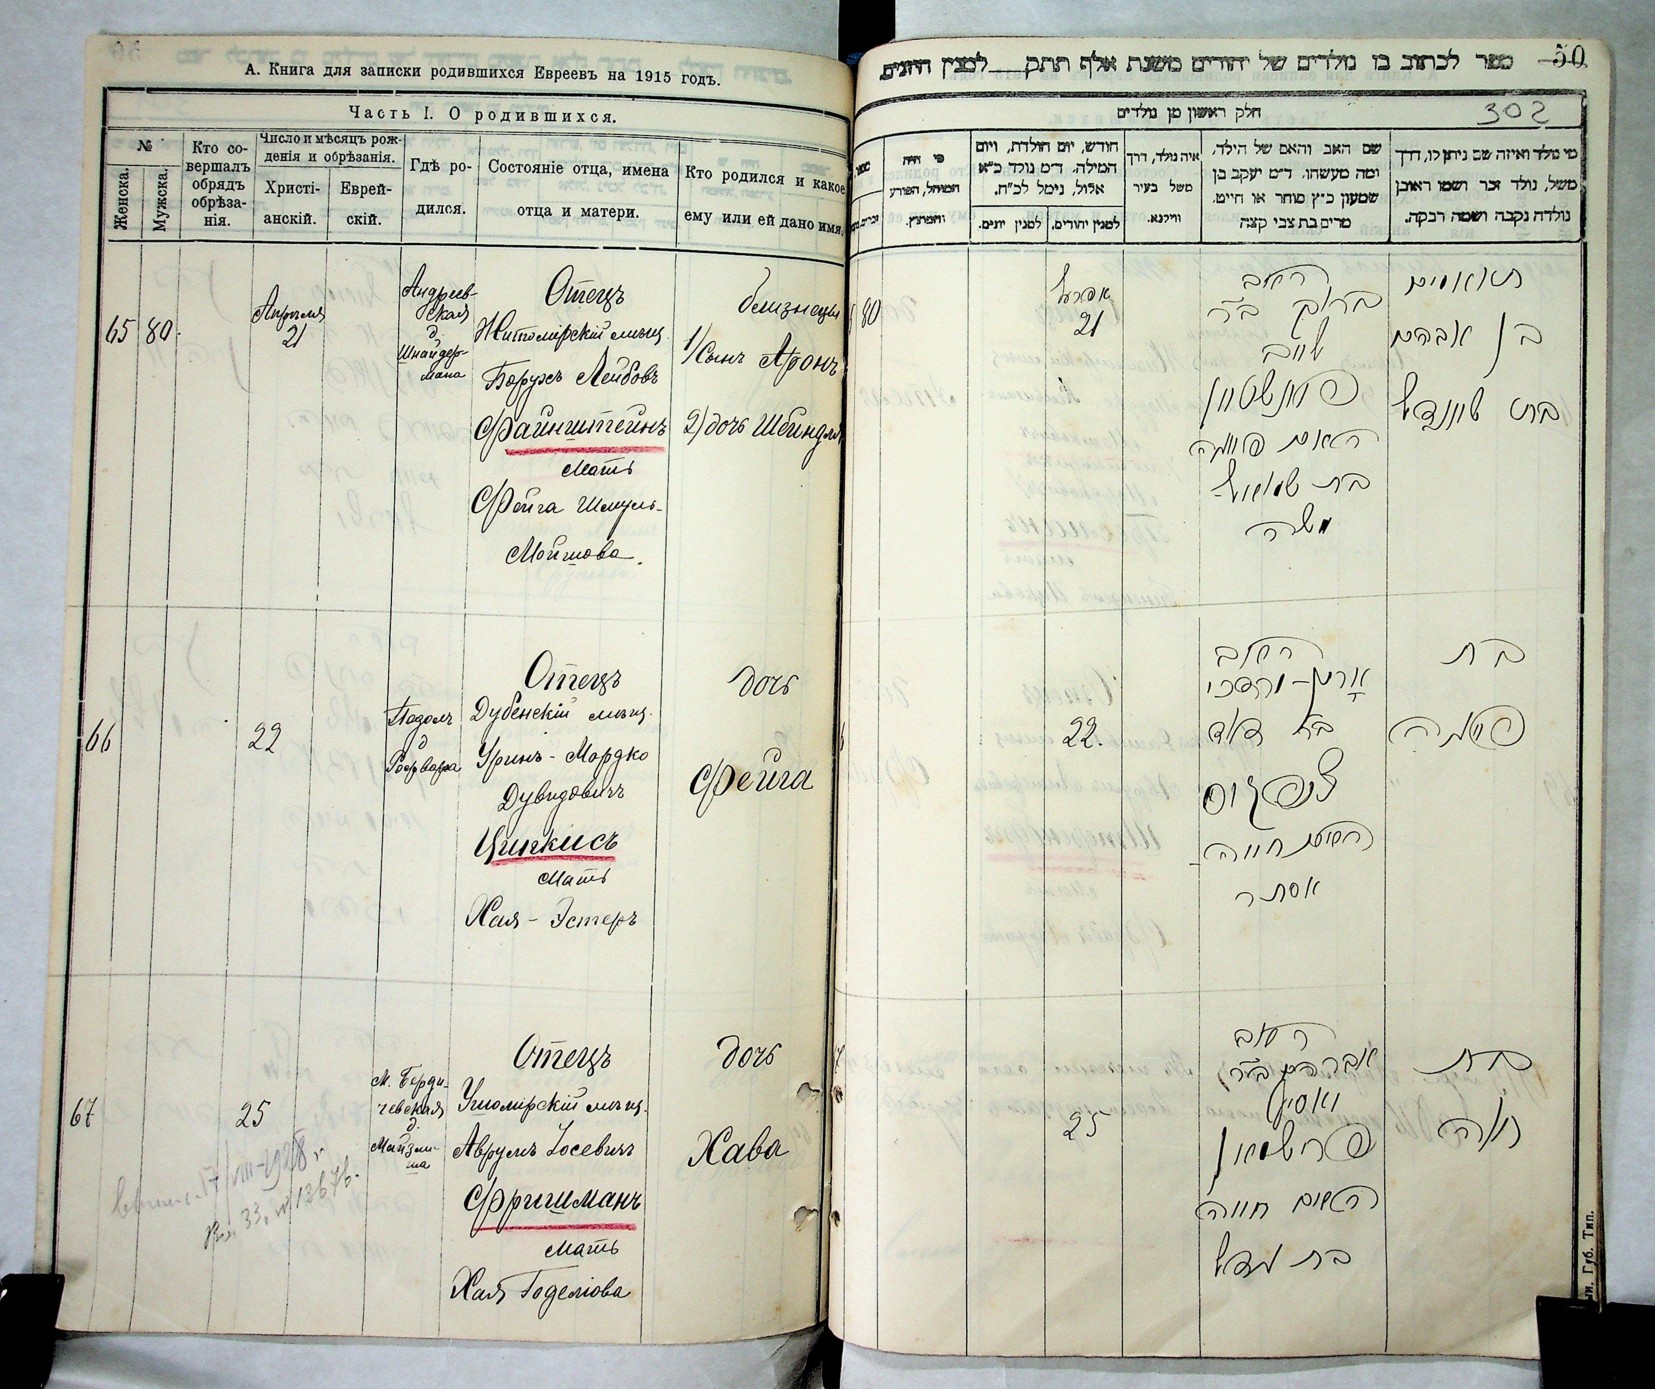 А. Книга для записки родившихся Евреевъ на 1915 годъ.
Часть I. О родившихся.
№
Женска.
Мужска.
Кто со-
вершалъ
обрядъ
обрѣза-
нія.
Число и мѣсяцъ рож-
денія и обрѣзанія.
Христі-
анскій.
Еврей-
скій.
Гдѣ ро-
дился.
Состояніе отца, имена
отца и матери.
Кто родился и какое
ему или ей дано имя.
65
80.
Апрѣля
21
Андреев-
ская
д.
Шнайдер-
мана
Отецъ
Житомірскій мѣщ.
Борухъ Лейбовъ
Файнштейнъ
Мать
Фейга Шмуль-
Мойшова.
близнецы
1/ Сынъ Аронъ
2) дочь Шейндля
66
22
Подолъ
д
Отецъ
Дубенскій мѣщ.
Уринъ-Мордко
Дувидовичъ
Цинкисъ
Мать
Хая-Эстеръ
дочь
Фейга
67
25
М. Бердичевская
д.
Отецъ
Ушомірскій мѣщ.
Аврумъ Іосевичъ
Фришманъ
Мать
Хая Годеліова
дочь
Хава
50
ספר לכתוב בו נולדים של יהודים משנת אלף תתק למנין היונים
302
חלק ראשון מן נולדים
מי נולד ואיזה שם ניתן לו, דרך
משל, נולד זכר ושמו ראובן
נולדה נקבה ושמה רבקה.
שם האב והאם של הילד,
ומה מעשהו. ד״מ יעקב בן
שמעון כ״ץ סוחר או חייט.
מרים בת צבי קצה
איה נולד, דרך
משל בעיר
ווילנא.
חודש, יום הולדת, ויום
המילה. ד״מ נולד כ״א
אלול, נימל לכ״ח.
למנין יהודים.
למנין יונים.
מי היה
המוהל, הפורע
והמוצץ.
תאומים
בן אברהם
בת שיינדל
האב
ברוך ב״ר
לייב
פיינשטיין
האם פייגה
בת שמואל
משה
אפריל
21
80
בת
פייגה
האב
ב״ר דוד
צינקיס
האם חיה
אסתר
22.
בת
חוה
האב
אברהם ב״ר
יאסיף
פרישמאן
האם חיה
בת גדל
25